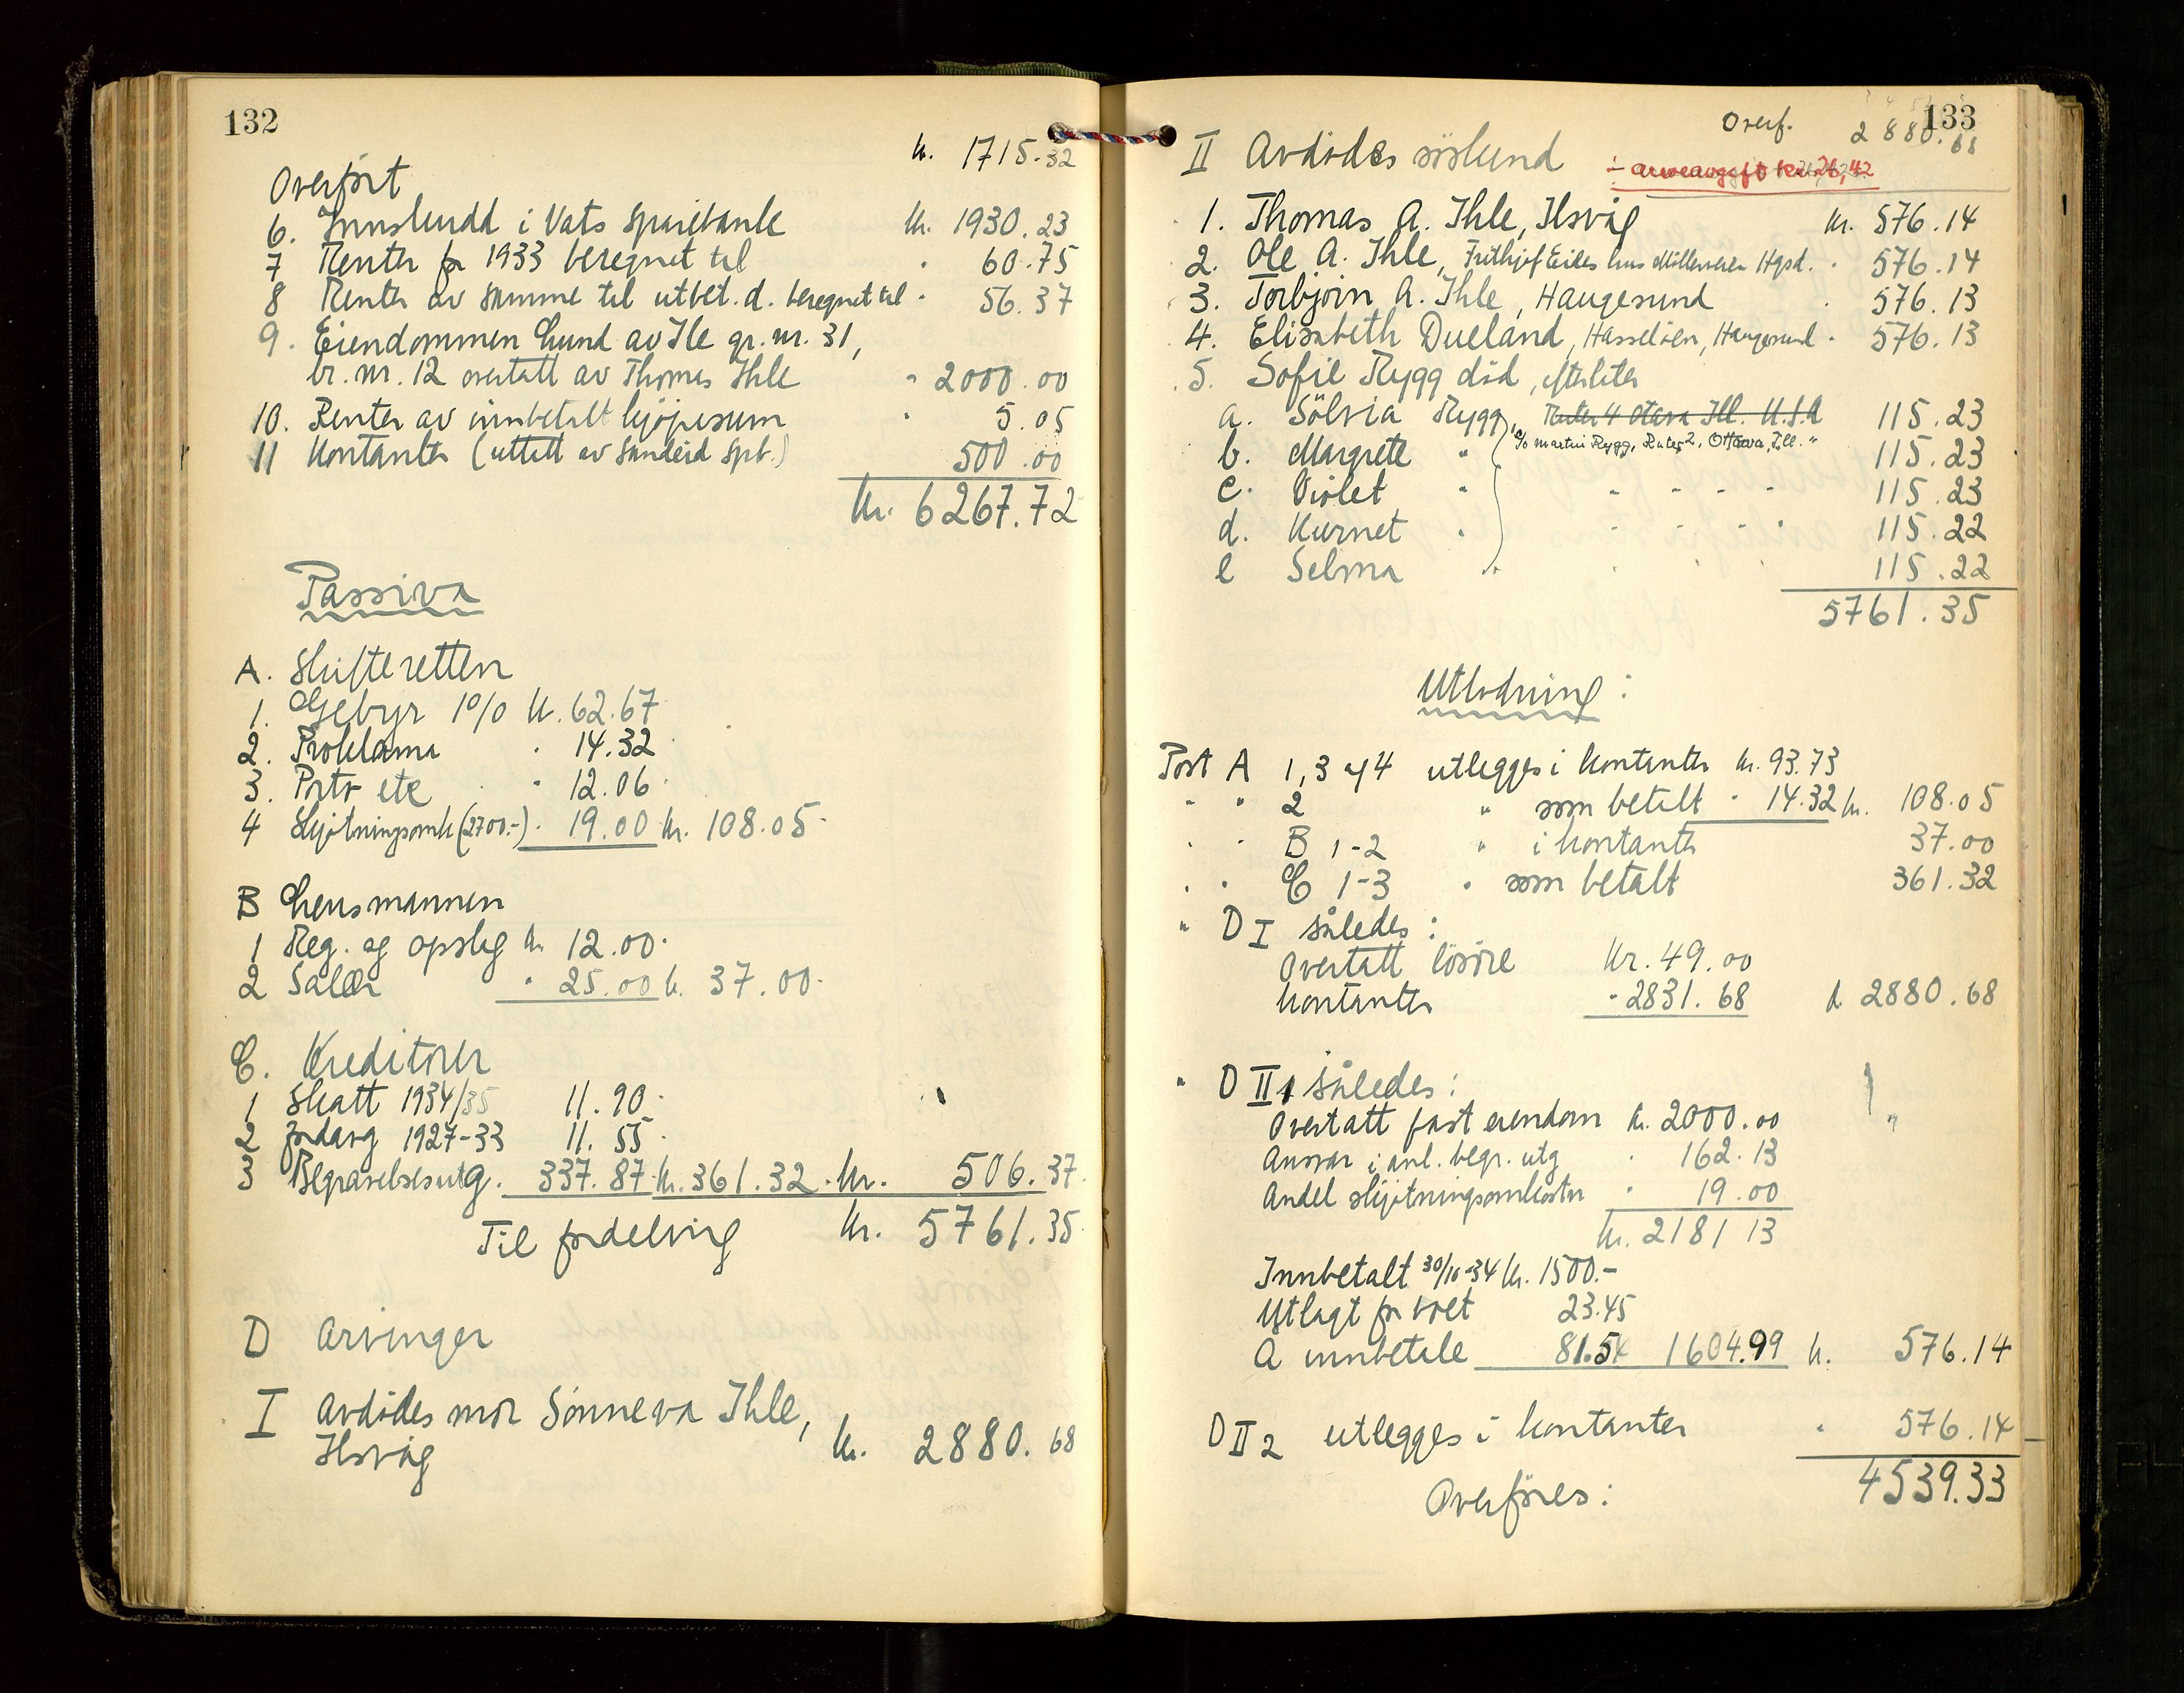 132
Overført kr. 1715.32
6. Innskudd i Vats Sparebank kr. 1930.23
7 Renter for 1933 beregnet til " 60.75
8 Renter av samme til utbet. d. beregnet til " 56.37
9. Eiendommen Lund av Ile gr. nr. 31,
br. nr. 12 overtatt av Thomas Ihle " 2000.00
10. Renter av innbetalt kjøpesum " 5.05
11 Kontanter (uttatt av Sandeid Spb.) 500.00
kr. 6267.72
Passiva
A. Skifteretten
1. Gebyr 1% kr. 62.67
2. Proklama " 14.32
3. Porto etc " 12.06
4 Skjøtningsomk (2700.-) " 19.00 kr. 108.05
B Lensmannen
1 Reg. og opslag kr. 12.00
2 Salær " 25.00 kr. 37.00
C. Kreditorer
1 Skatt 1934/35 11.90
2 Jordavg 1927-33 11.55
3 Begravelsesutg. 337.87 kr. 361.32 kr. 506.37
Til fordeling kr. 5761.35
D Arvinger
I Avdødes mor Sønneva Ihle,
Ilsvåg kr. 2880.68
133
Overf. 2880.68
II Avdødes søskend
÷ arveavgift kr. 26,42
1. Thomas A. Ihle, Ilsvåg kr. 576.14
2. Ole A. Ihle, Frithjof Eides hus Møllerveien Hgsd. " 576.14
3. Torbjørn A. Ihle, Haugesund " 576.13
4. Elisabeth Dueland, Hasseløen, Haugesund " 576.13
5. Sofie Rygg død, efterlater
a. Sølvia Rygg, Ruter 4 Otava Ill. U.S.A 115.23
c/o Martin Rygg, Rute 2, Ottawa, Ill. "
b. Margrete " 115.23
c. Violet " 115.23
d. Kurnet " 115.22
e Selma " 115.22
5761.35
Utlodning:
Post A 1,3 og 4 utlegges i kontanter kr. 93.73
" " 2 " som betalt " 14.32 kr. 108.05
" " B 1-2 " i kontanter 37.00
" " C 1-3 " som betalt 361.32
" D I således:
Overtatt løsøre kr. 49.00
Kontanter " 2831.68 kr. 2880.68
" D II 1 således:
Overtatt fast eiendom kr. 2000.00
Ansvar i anl. begr. utg " 162.13
Andel skjøtningsomkostn " 19.00
kr. 2181 13
Innbetalt 30/10-34 kr. 1500.-
Utlagt for boet 23.45
Å innbetale 81.54 1604.99 kr. 576.14
D II 2 utlegges i kontanter " 576.14
Overføres: 4539.33